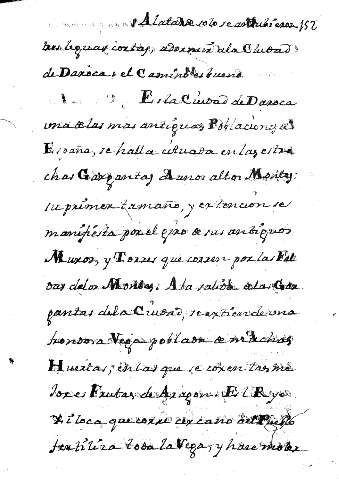 A la tarde solo se andubieron 352
tres leguas cortas, a dormir a la Ciudad
de Daroca: el Camino es bueno
Es la Ciudad de Daroca
una de las mas antiguas Poblaciones de
España, se halla cituada en las estre
chas Gargantas de unos altos Montes:
su primer tamaño, y extencion se
manifiesta por el giro de sus antiguos
Muros, y Torres que corren por las Fal
das de los Montes: A la salida de las Gar
gantas de la Ciudad, se extiende una
frondosa Vega poblada de muchas
Huertas; en las que se cojen las me
jores Frutas de Aragon: El Ryo
Xiloca que corre cercano del Pueblo
fertiliza toda la Vega, y hace moler